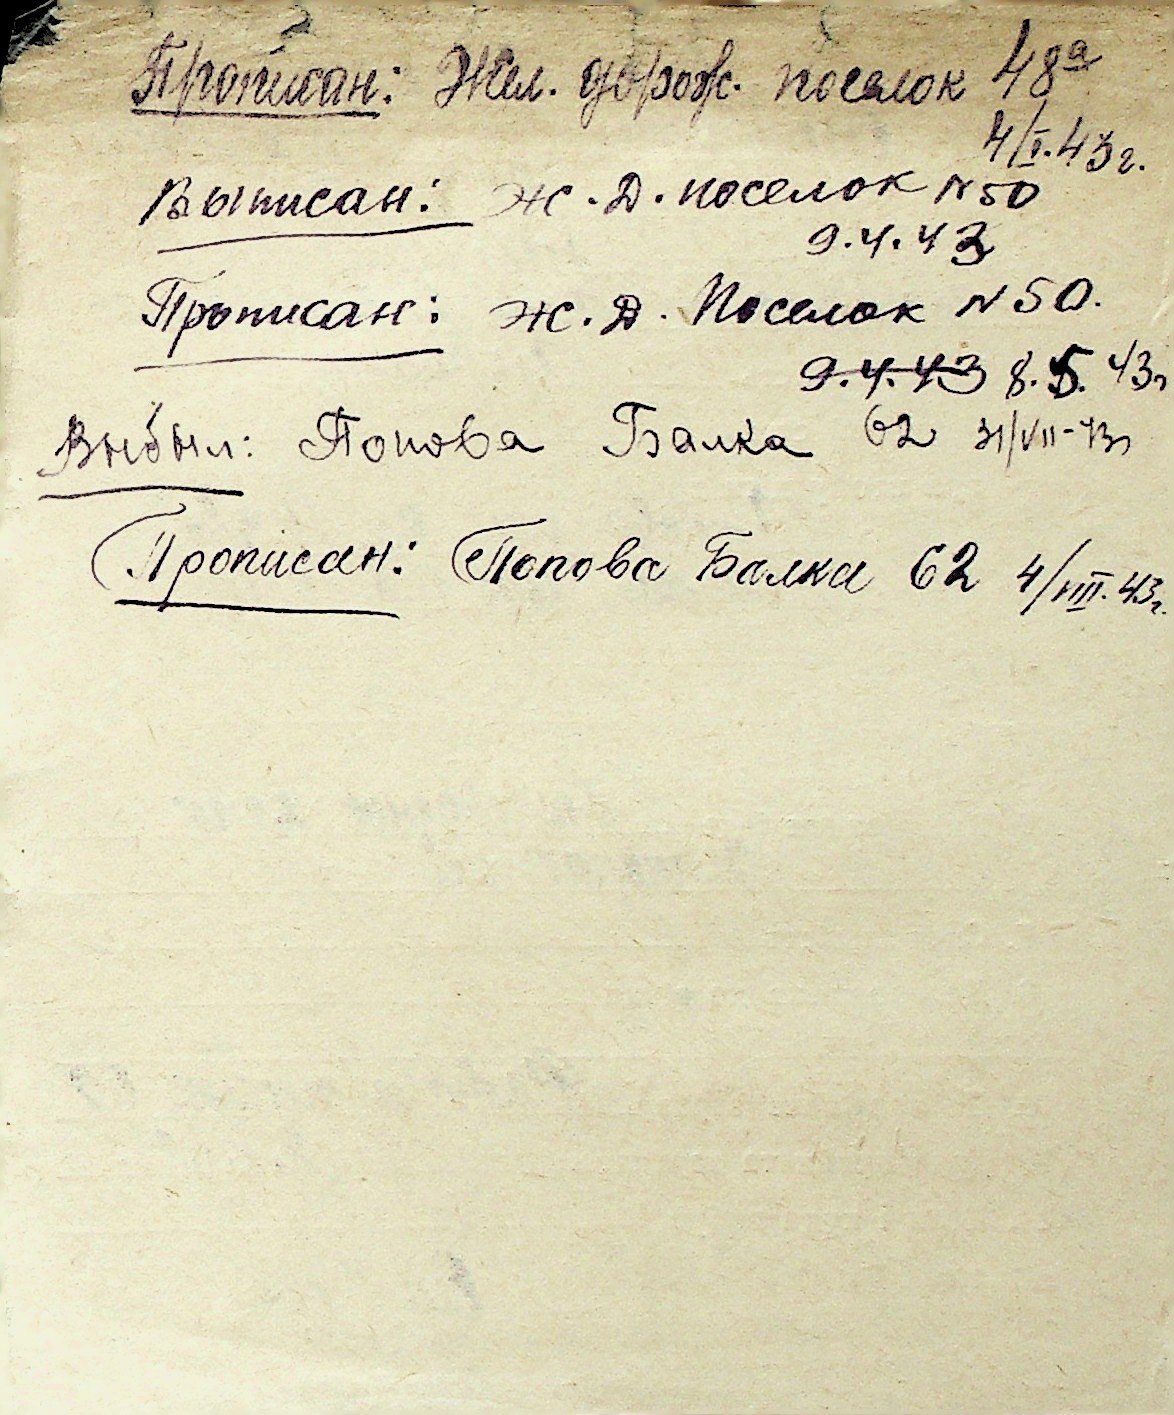 Прописан: Жел. дорож. поселок 48а
4/I.43г.
Выписан: Ж.Д. поселок N 50
9.4.43
Прописан: Ж.Д. Поселок N 50.
9.4.43 8.5. 43г
Выбыл: Попова Балка 62 31/VII-43г
Прописан: Попова Балка 62 4/VIII.43г.